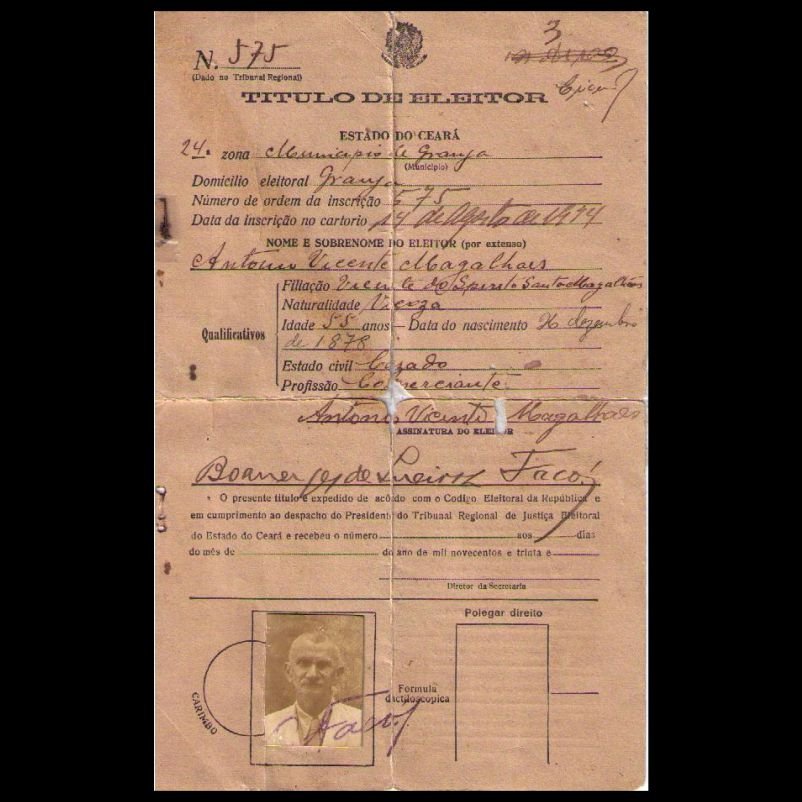 N. 575
(Dado no Tribunal Regional)
3
TITULO DE ELEITOR
ESTADO DO CEARÁ
24ª zona Municipio de Granja
(Municipio)
Domicilio eleitoral Granja
Número de ordem da inscrição 575
Data da inscrição no cartorio 14 de Agosto de 1934
NOME E SOBRENOME DO ELEITOR (por extenso)
Antonio Vicente Magalhaes
Qualificativos
Filiação Vicente do Spirito Santo Magalhães
Naturalidade Viçoza
Idade 55 anos — Data do nascimento 26 dezembro
de 1878
Estado civil Cazado
Profissão Comerciante
Antonio Vicente Magalhaes
ASSINATURA DO ELEITOR
Boanerges de Queiroz Facó
O presente titulo é expedido de acôrdo com o Codigo Eleitoral da República e
em cumprimento ao despacho do Presidente do Tribunal Regional de Justiça Eleitoral
do Estado do Ceará e recebeu o número aos dias
do mês de do ano de mil novecentos e trinta e
Diretor da Secretaria
CARIMBO
Facó
Formula
dactiloscopica
Polegar direito